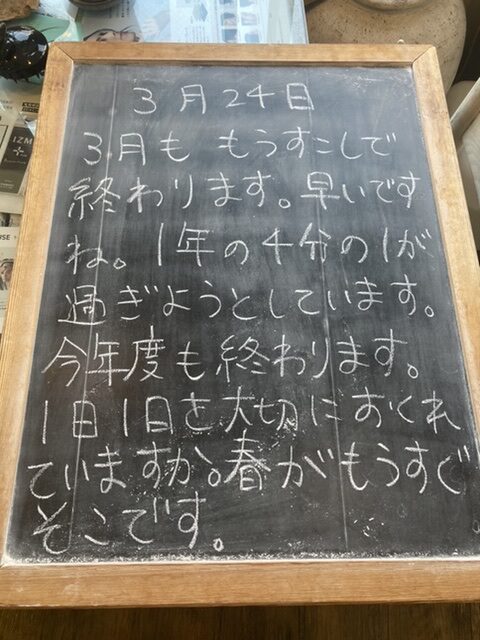 3月24日
3月も もうすこしで
終わります。早いです
ね。1年の4分の1が
過ぎようとしています。
今年度も終わります。
1日1日を大切におくれ
ていますか。春がもうすぐ
そこです。